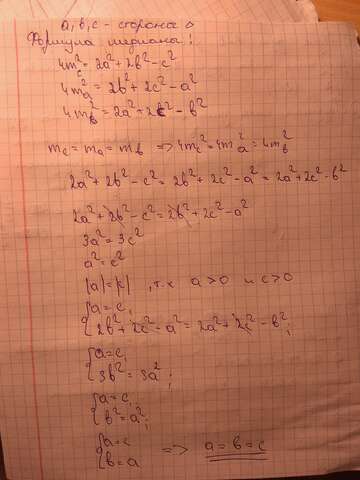 a, b, c - стороны △
Формула медианы!
4m_c² = 2a² + 2b² - c²
4m_a² = 2b² + 2c² - a²
4m_b² = 2a² + 2c² - b²
m_c = m_a = m_b => 4m_c² = 4m_a² = 4m_b²
2a² + 2b² - c² = 2b² + 2c² - a² = 2a² + 2c² - b²
2a² + 2b² - c² = 2b² + 2c² - a²
3a² = 3c²
a² = c²
|a| = |c| , т.к a > 0 и c > 0
{a = c,
{2b² + 2c² - a² = 2a² + 2c² - b²;
{a = c,
{3b² = 3a²;
{a = c,
{b² = a²;
{a = c
{b = a => a = b = c